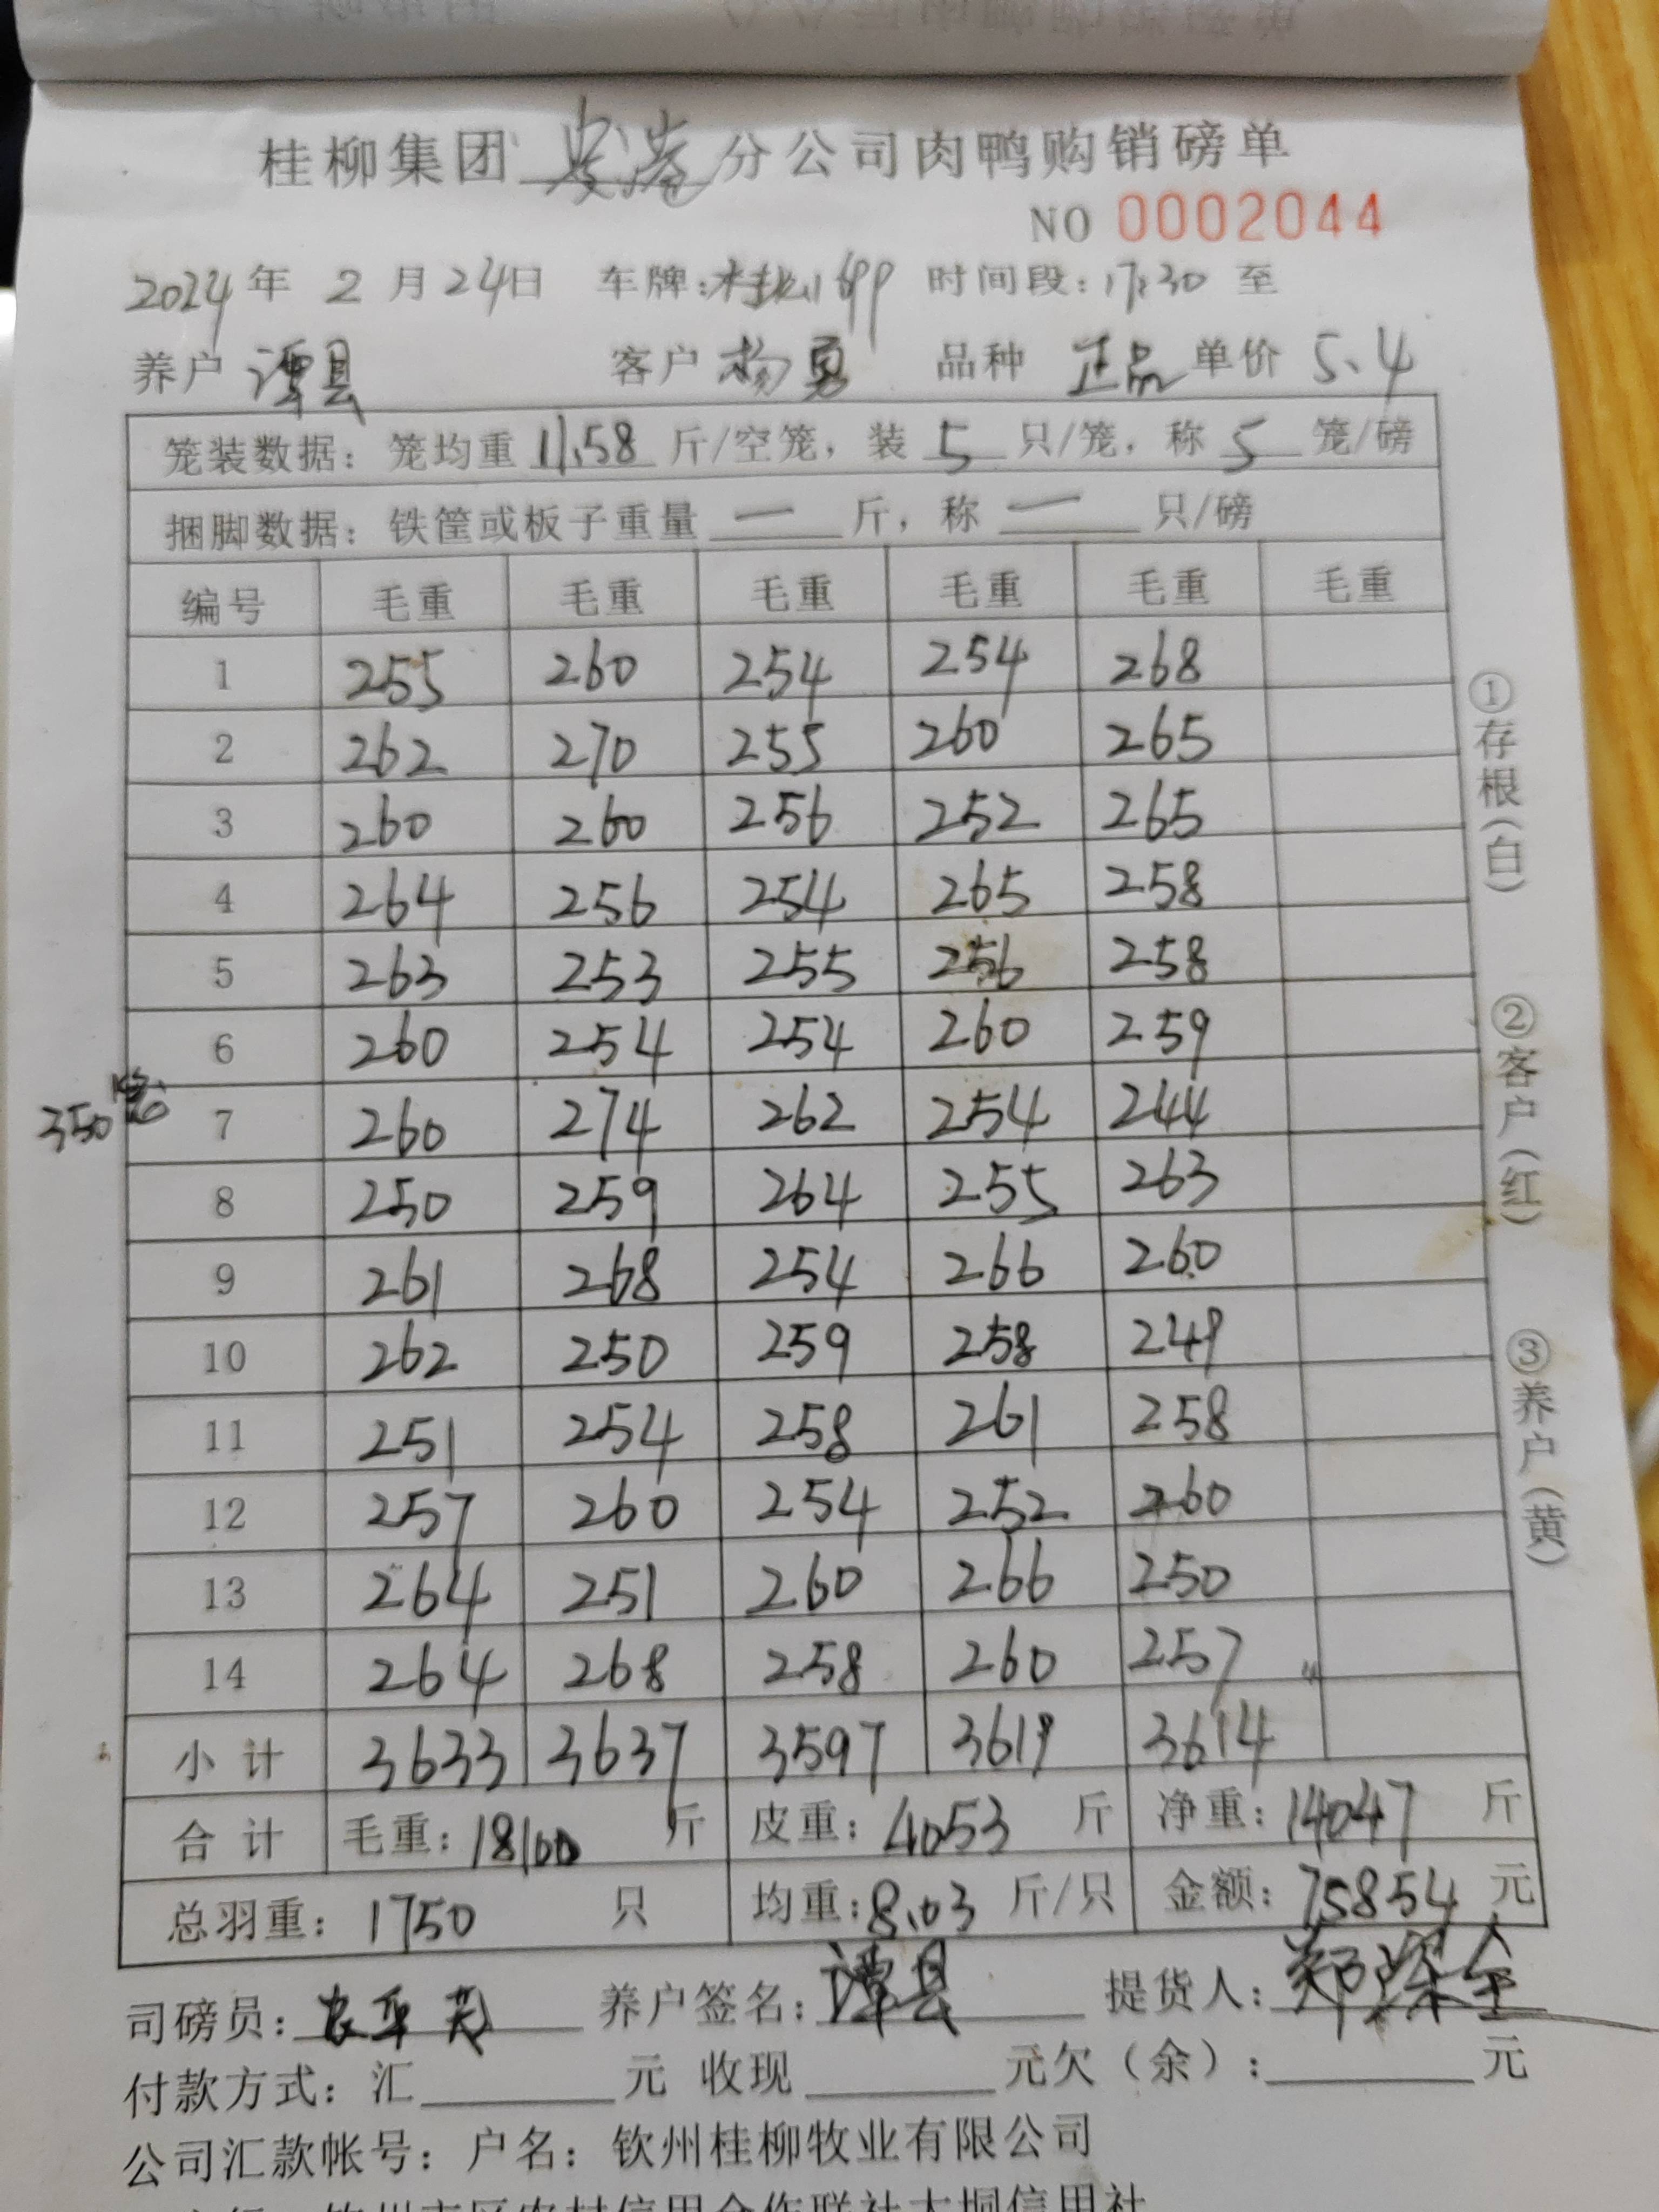 桂柳集团 分公司肉鸭购销磅单
NO 0002044
2024年 2月24日 车牌: 时间段:17:30 至
养户 谭县 客户 杨勇 品种 正品 单价 5.4
笼装数据:笼均重 11.58 斤/空笼,装 5 只/笼,称 5 笼/磅
捆脚数据:铁筐或板子重量 — 斤,称 — 只/磅
编号 毛重 毛重 毛重 毛重 毛重 毛重
1 255 260 254 254 268
2 262 270 255 260 265
3 260 260 256 252 265
4 264 256 254 265 258
5 263 253 255 256 258
6 260 254 254 260 259
350笼
7 260 274 262 254 244
8 250 259 264 255 263
9 261 268 254 266 260
10 262 250 259 258 249
11 251 254 258 261 258
12 257 260 254 252 260
13 264 251 260 266 250
14 264 268 258 260 257
小计 3633 3637 3597 3619 3614
合计 毛重:18100 斤 皮重:4053 斤 净重:14047 斤
总羽重:1750 只 均重:8.03 斤/只 金额:75854 元
司磅员: 养户签名:谭县 提货人:郑深全
付款方式:汇 元 收现 元欠(余): 元
公司汇款帐号:户名:钦州桂柳牧业有限公司
①存根(白) ②客户(红) ③养户(黄)